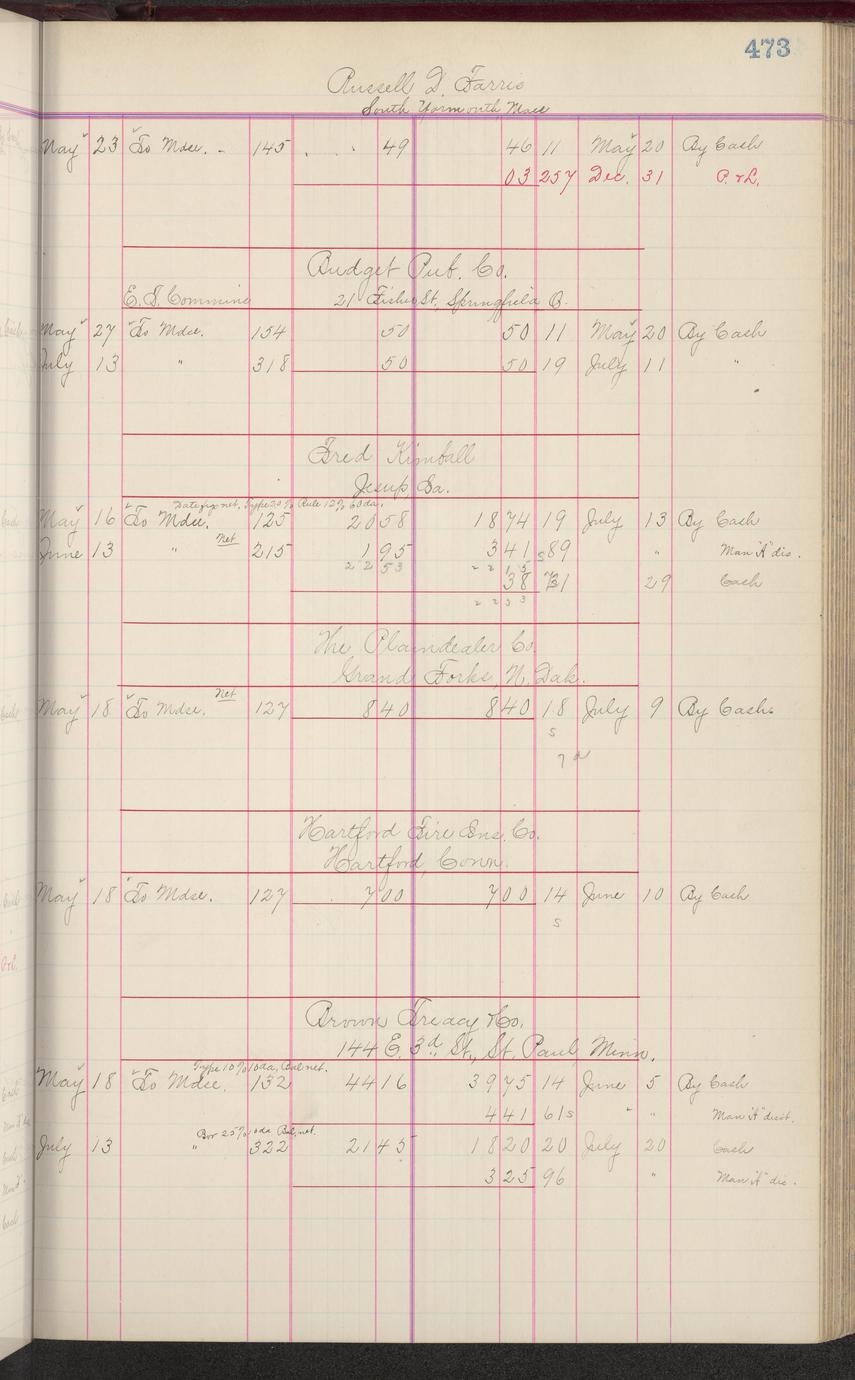 473
Russell D. Farris
South Yarmouth, Mass
May 23 To Mdse. 145 49 46 11 May 20 By Cash
03 257 Dec. 31 P. & L.
Budget Pub. Co.
E. S. 21 Fisher St., Springfield, O.
May 27 To Mdse. 154 50 50 11 May 20 By Cash
July 13 " 318 50 50 19 July 11 "
Fred Kimball
Jesup, Ga.
net, Type 20% Rule 12% 60 da.
May 16 To Mdse. 125 20 58 18 74 19 July 13 By Cash
June 13 " Net 215 1 95 3 41 S 89 " Man "A" dis.
22 53 22 15
38 31 29 Cash
22 53
The Plaindealer Co.
Grand Forks, N. Dak.
May 18 To Mdse. Net 127 8 40 8 40 18 July 9 By Cash
S
7
Hartford Fire Ins. Co.
Hartford, Conn.
May 18 To Mdse. 127 7 00 7 00 14 June 10 By Cash
S
Brown Treacy & Co.
144 E. 3d. St., St. Paul, Minn.
Type 10% 10 da. Bal. net.
May 18 To Mdse. 132 44 16 39 75 14 June 5 By Cash
4 41 61 S " " Man "A" disct.
Bor 25% 10 da Bal. net.
July 13 " 322 21 45 18 20 20 July 20 Cash
3 25 96 " Man "A" dis.